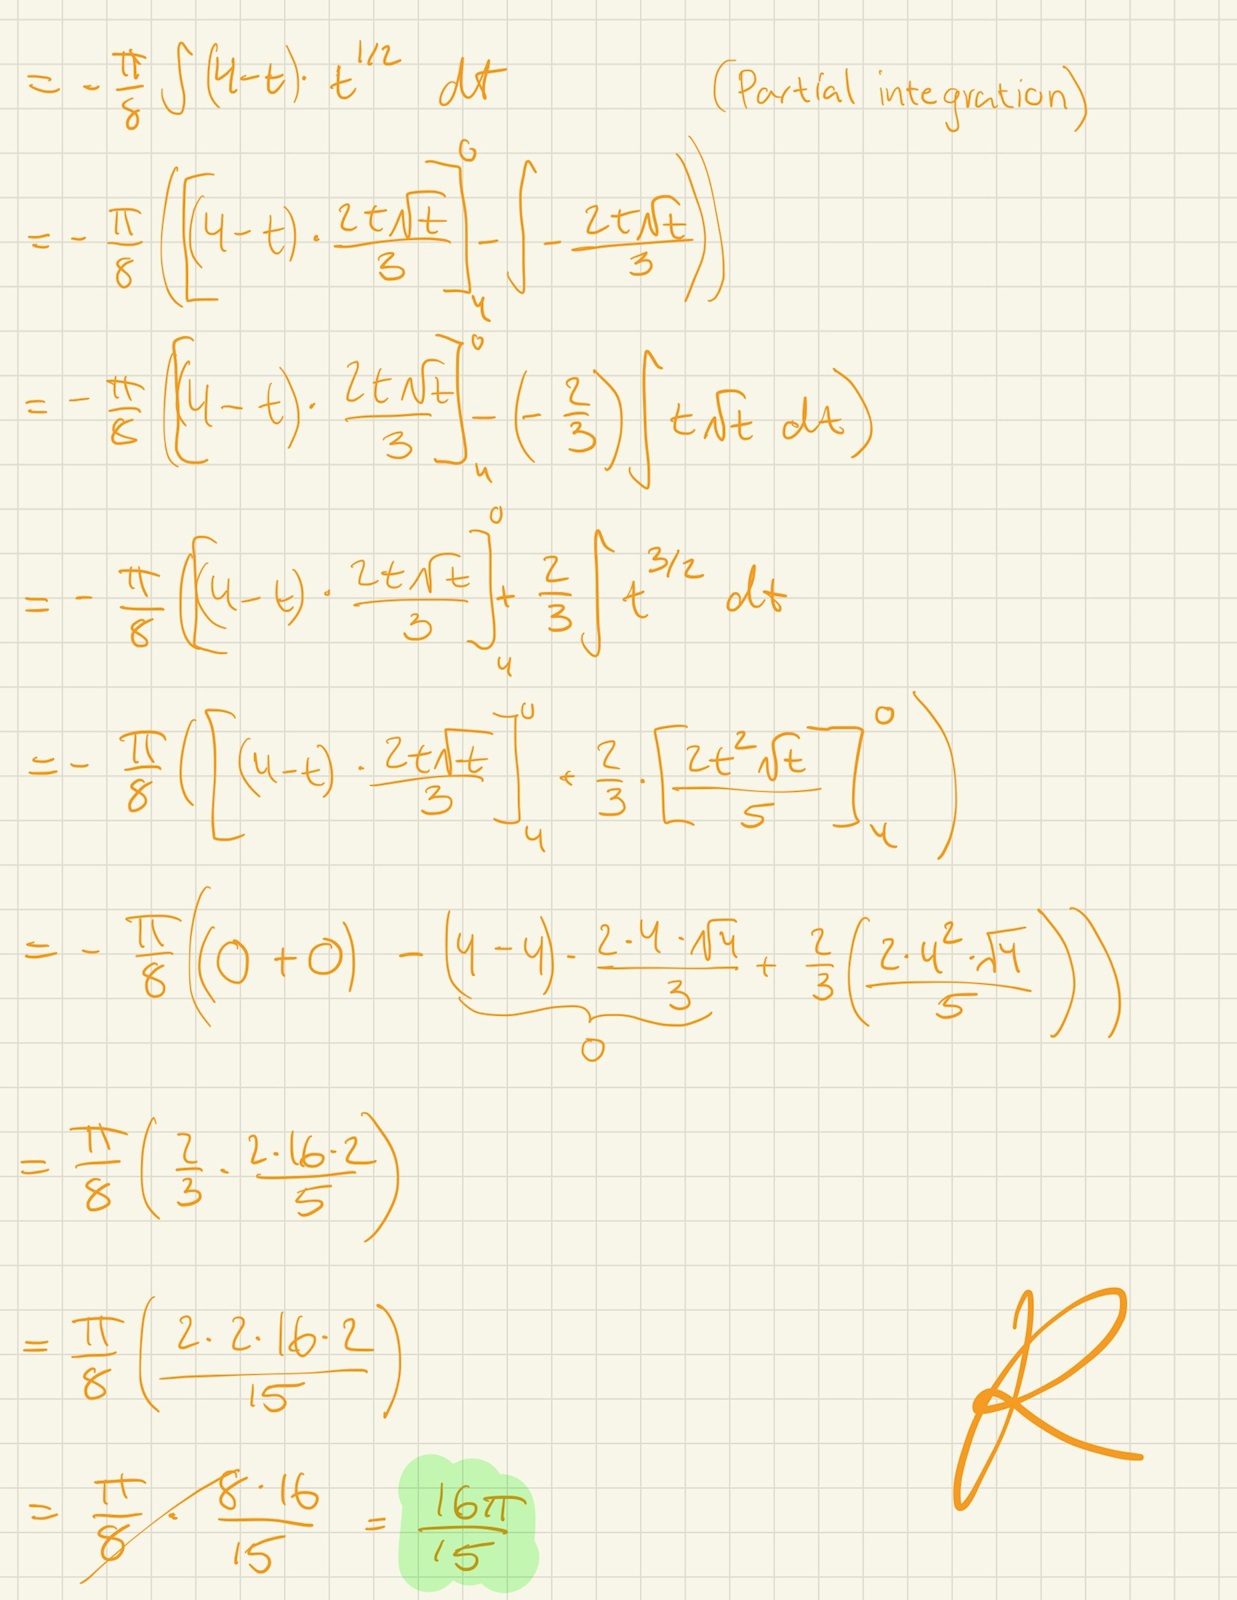 = - π/8 ∫ (4-t) · t^1/2 dt (Partial integration)
= - π/8 ([(4-t) · 2t√t/3]₄⁰ - ∫ - 2t√t/3))
= - π/8 ([(4-t) · 2t√t/3]₄⁰ - (-2/3) ∫ t√t dt)
= - π/8 ([(4-t) · 2t√t/3]₄⁰ + 2/3 ∫ t^3/2 dt
= - π/8 ([(4-t) · 2t√t/3]₄⁰ + 2/3 · [2t²√t/5]₄⁰)
= - π/8 ((0+0) - (4-4) · 2·4·√4/3 + 2/3 (2·4²·√4/5)))
0
= π/8 (2/3 · 2·16·2/5)
= π/8 (2·2·16·2/15)
= π/8 · 8·16/15 = 16π/15
R